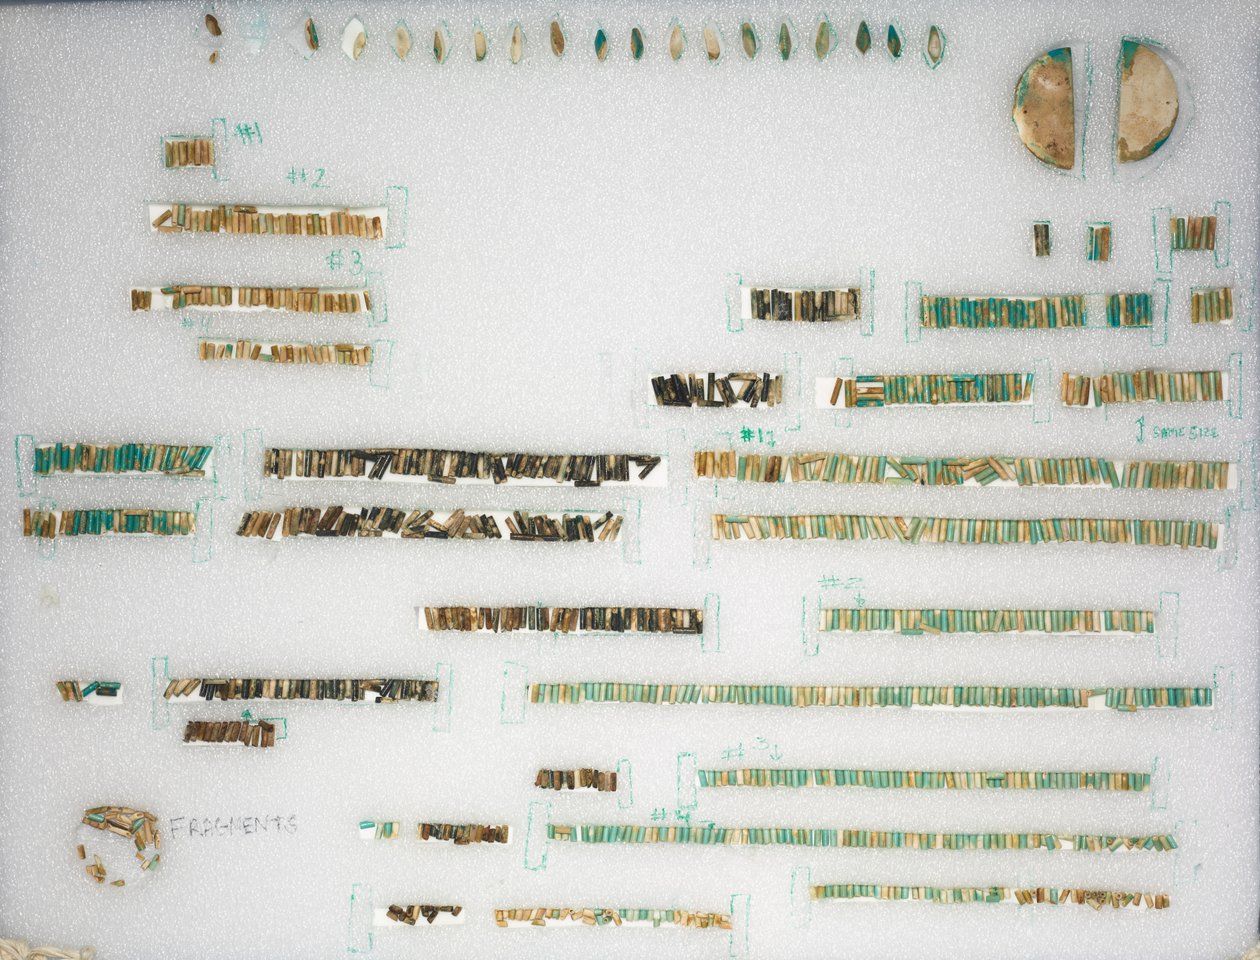 #1
#2
#3
#4
#1
SAME SIZE
#2
#3
#4
FRAGMENTS